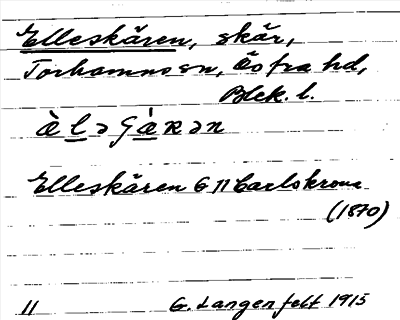 Elleskären, skär,
Torhamns sn, Östra hd,
Blek. l.
Elleskären G 11 Carlskrona
(1870)
11 G. Langenfelt 1915